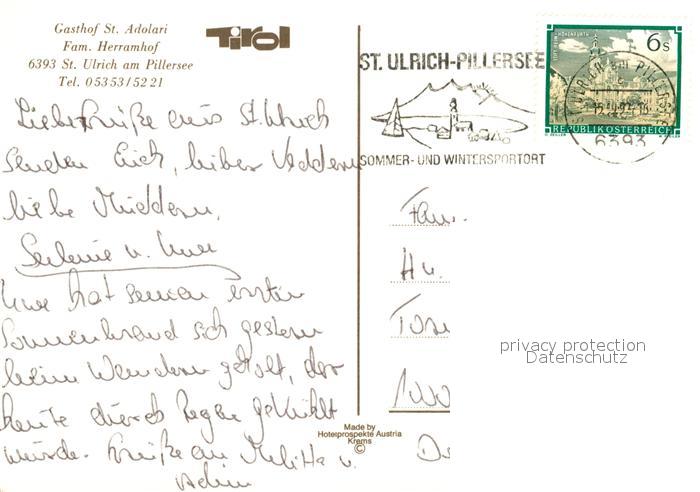 Gasthof St. Adolari
Fam. Herramhof
6393 St. Ulrich am Pillersee
Tel. 05353/5221
Tirol
ST. ULRICH-PILLERSEE
SOMMER- UND WINTERSPORTORT
6 s
STIFT REIN-HOHENFURTH
REPUBLIK ÖSTERREICH
ST. ULRICH AM PILLERSEE
6393
Liebe Grüße aus St. Ulrich
senden Euch, lieber
liebe
u. Uwe
Uwe hat seinen ersten
Sonnenbrand sich gestern
beim Wandern geholt, der
heute durch Regen gekühlt
wurde. Grüße an Melitta u.
Achim
Fam.
1000
privacy protection
Datenschutz
Made by
Hotelprospekte Austria
Krems
©